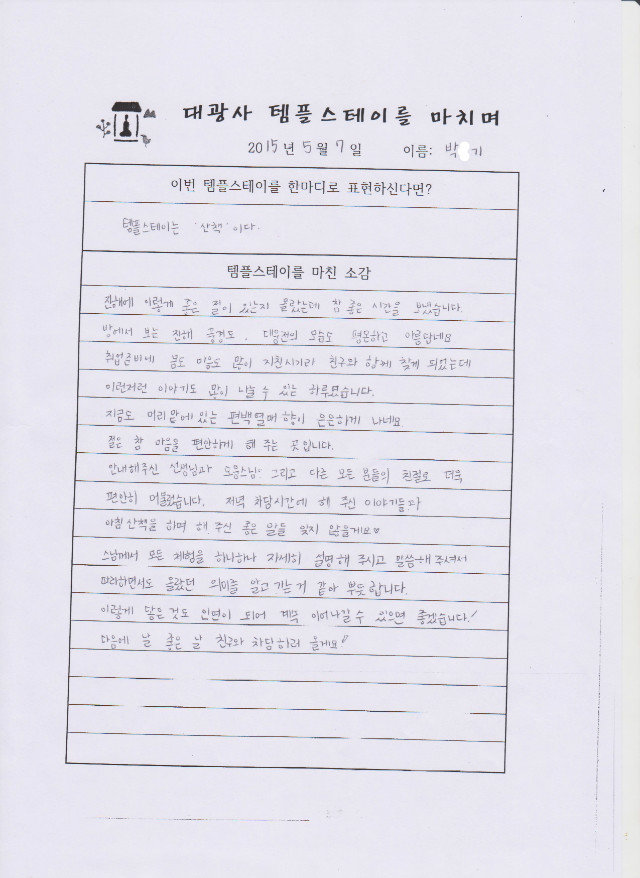 대광사 템플스테이를 마치며
2015년 5월 7일 이름: 박 기
이번 템플스테이를 한마디로 표현하신다면?
템플스테이는 '산책'이다.
템플스테이를 마친 소감
진해에 이렇게 좋은 절이 있는지 몰랐는데 참 좋은 시간을 보냈습니다.
방에서 보는 진해 풍경도, 대웅전의 모습도 평온하고 아름답네요
취업준비에 몸도 마음도 많이 지친시기라 친구와 함께 찾게 되었는데
이런저런 이야기도 많이 나눌 수 있는 하루였습니다.
지금도 머리맡에 있는 편백열매 향이 은은하게 나네요.
절은 참 마음을 편안하게 해 주는 곳입니다.
안내해주신 선생님과 도웅스님, 그리고 다른 모든 분들의 친절로 더욱
편안히 머물렀습니다. 저녁 차담시간에 해 주신 이야기들과
아침산책을 하며 해 주신 좋은 말들 잊지 않을게요♡
스님께서 모든 체험을 하나하나 자세히 설명해 주시고 말씀해주셔서
따라하면서도 몰랐던 의미를 알고 가는 거 같아 뿌듯합니다.
이렇게 닿은것도 인연이 되어 계속 이어나갈 수 있으면 좋겠습니다!
다음에 날 좋은 날 친구와 차담하러 올게요!